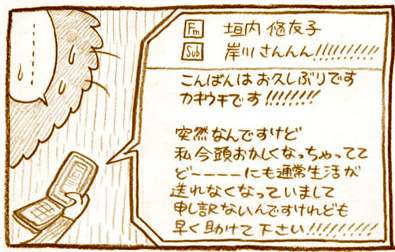 Fm 垣内 悠友子
Sub 岸川さんんん!!!!!!!!!!
こんばんは お久しぶりです
カキウチです!!!!!!!!
突然なんですけど
私今頭おかしくなっちゃってて
どーーーーにも通常生活が
送れなくなっていまして
申し訳ないんですけれども
早く助けて下さい!!!!!!!!!!